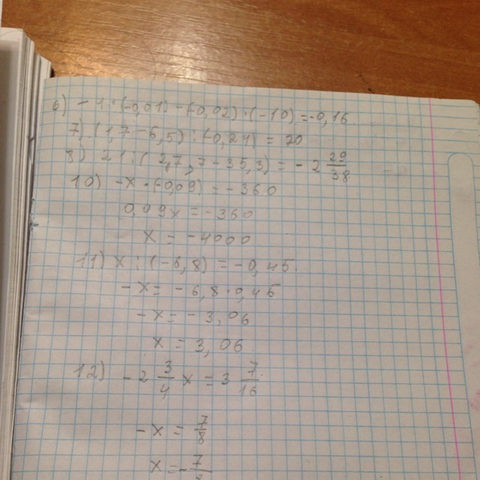 6) -4:(-0,01)-(-0,02)·(-10)=-0,16
7) (1,7-6,5):(-0,24)=20
8) 21:(27,7-35,3)=-2 29/38
10) -x·(-0,09)=-360
0,09x=-360
x=-4000
11) x:(-6,8)=-0,45
-x=-6,8·0,45
-x=-3,06
x=3,06
12) -2 3/4 x=3 7/16
-x=7/8
x=-7